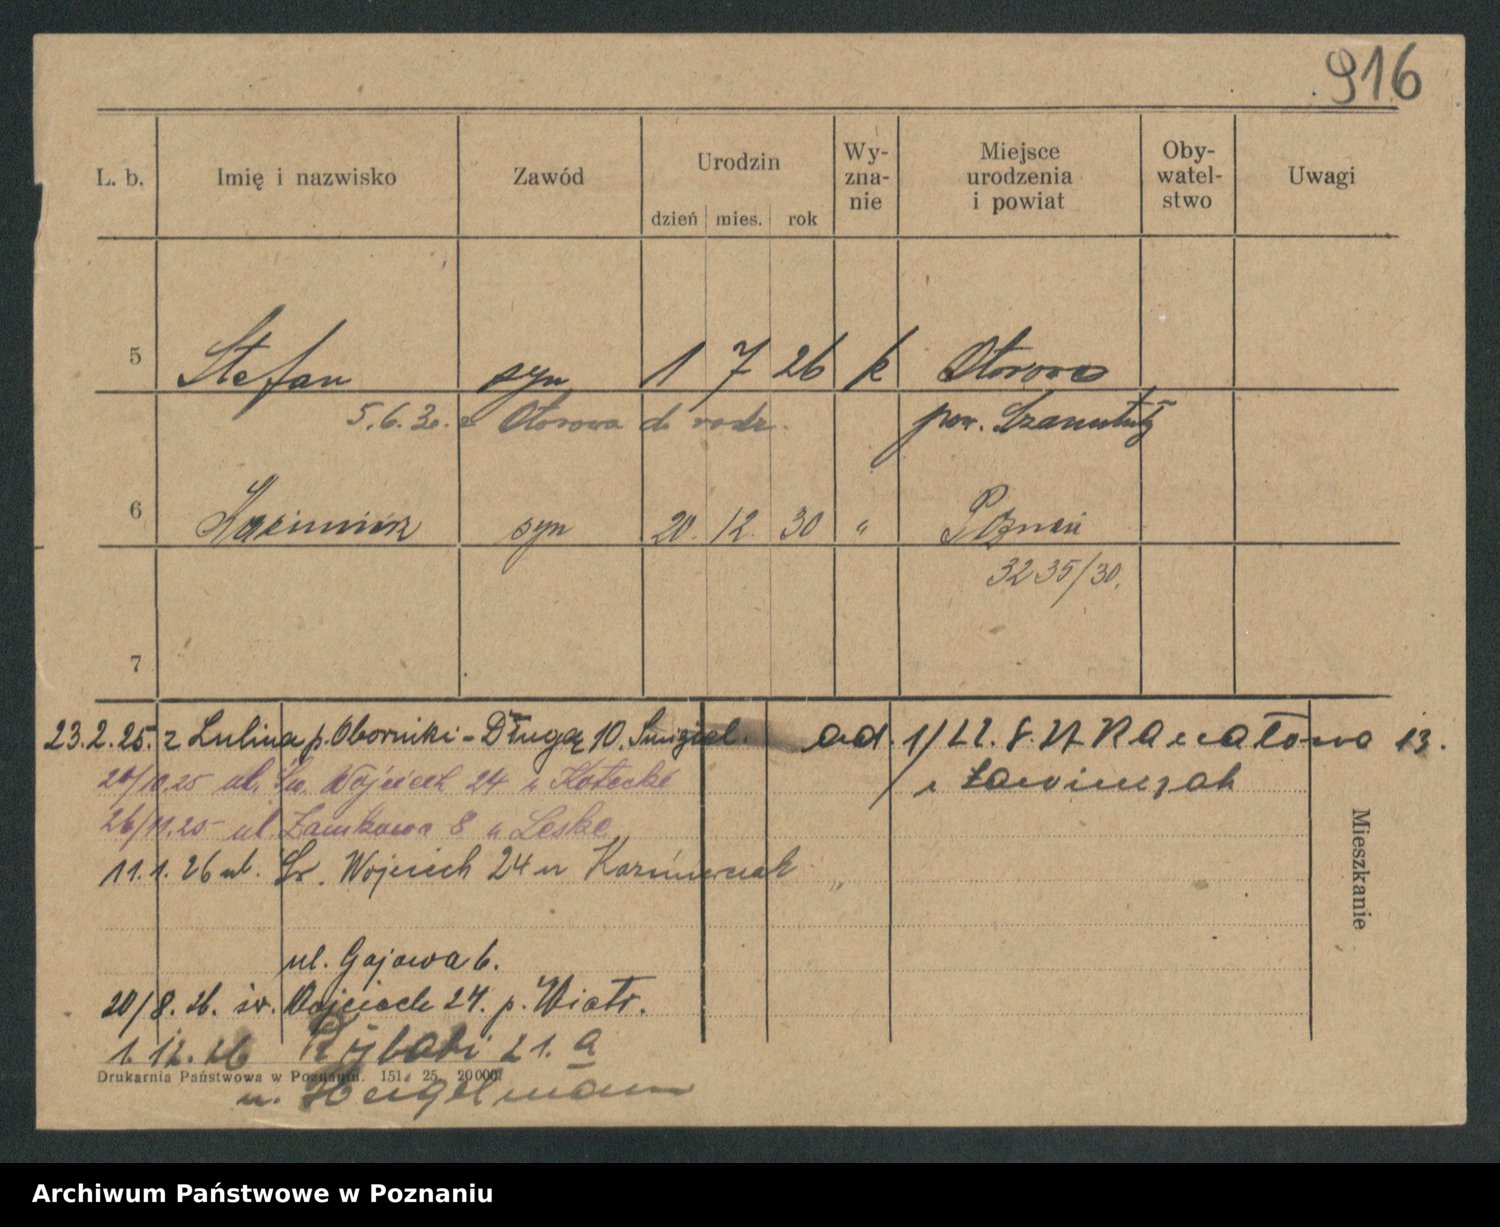 916
L. b. Imię i nazwisko Zawód Urodzin Wy-zna-nie Miejsce urodzenia i powiat Oby-watel-stwo Uwagi
dzień mies. rok
5 Stefan syn 1 7 26 k Otorowo
5.6.3. z Otorowa do rodz. pow. Szamotuły
6 Kazimierz syn 20. 12. 30 " Poznań
3235/30.
7
23.2.25. z Lulina p. Oborniki - Długa 10. Śmigiel. od. 1/12. 8. 13.
20/10.25 ul. Św. Wojciech 24 u Kotecki
26/11.25 ul. Zamkowa 8 u Leske
11.1.26 ul. Św. Wojciech 24 u Kaźmierczak
ul. Gajowa 6.
20/8.26. św. Wojciech 24. p. Wiatr.
1.12.26 Rybaki 21.a
Drukarnia Państwowa w Poznaniu. 151. 25. 20000.
u. Hengelmann
Mieszkanie
Archiwum Państwowe w Poznaniu